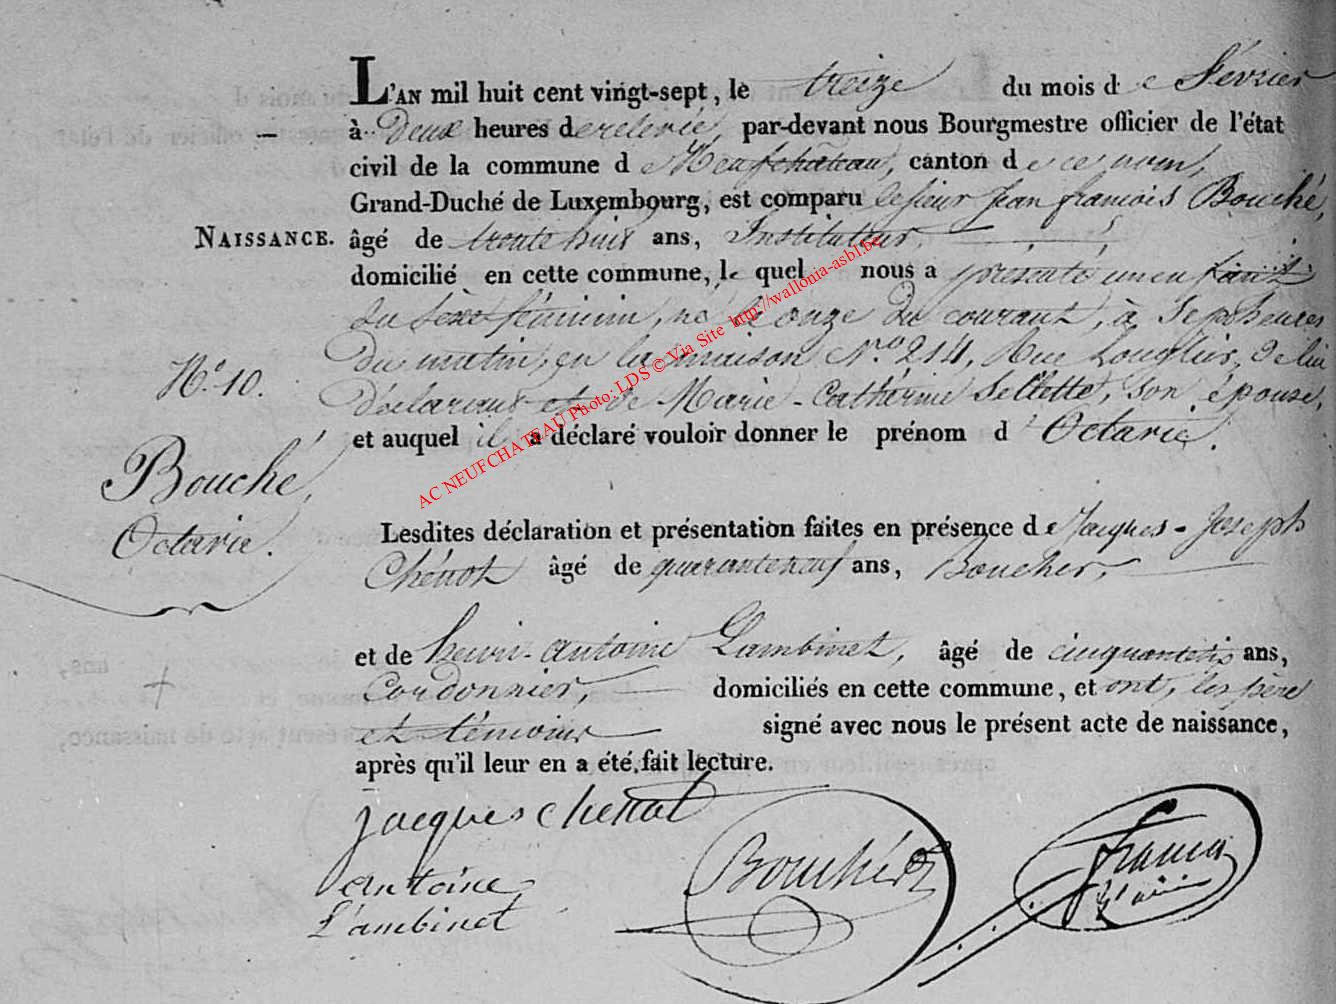 L'AN mil huit cent vingt-sept, le treize du mois de Février
à deux heures de relevée, par-devant nous Bourgmestre officier de l'état
civil de la commune de Neufchâteau, canton de ce nom,
Grand-Duché de Luxembourg, est comparu le sieur Jean françois Bouché,
NAISSANCE. âgé de trente huit ans, Instituteur,
domicilié en cette commune, le quel nous a présenté un enfant
du sexe féminin, né le onze du courant, à sept heures
du matin, en la maison N.ro 214, Rue Longlier, de lui
N.o 10.
déclarant et de Marie-Catherine Sellette, son épouse,
et auquel il a déclaré vouloir donner le prénom d'Octavie.
Bouché,
Octavie.
AC NEUFCHATEAU Photo: LDS © Via Site http://wallonia-asbl.be
Lesdites déclaration et présentation faites en présence de Jacques-Joseph
Chénot âgé de quarante neuf ans, Boucher,
et de henri-antoine Lambinet, âgé de cinquante ans,
Cordonnier, domiciliés en cette commune, et ont, les père
et témoins signé avec nous le présent acte de naissance,
après qu'il leur en a été fait lecture.
jacques chenot
Bouché
antoine
Lambinet